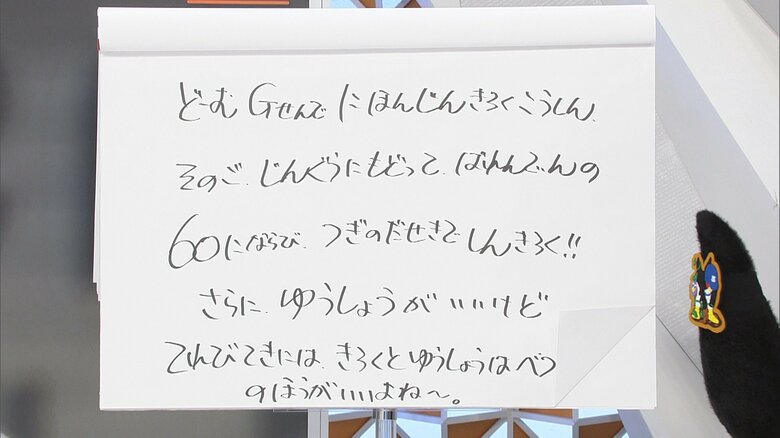 どーむ Gせんで にほんじんきろくこうしん.
そのご.じんぐうにもどって.ばれんでぃんの
60にならび.つぎのだせきで しんきろく!!
さらに.ゆうしょうがいいけど
てれびてきには.きろくとゆうしょうはべつ
のほうがいいよね〜。